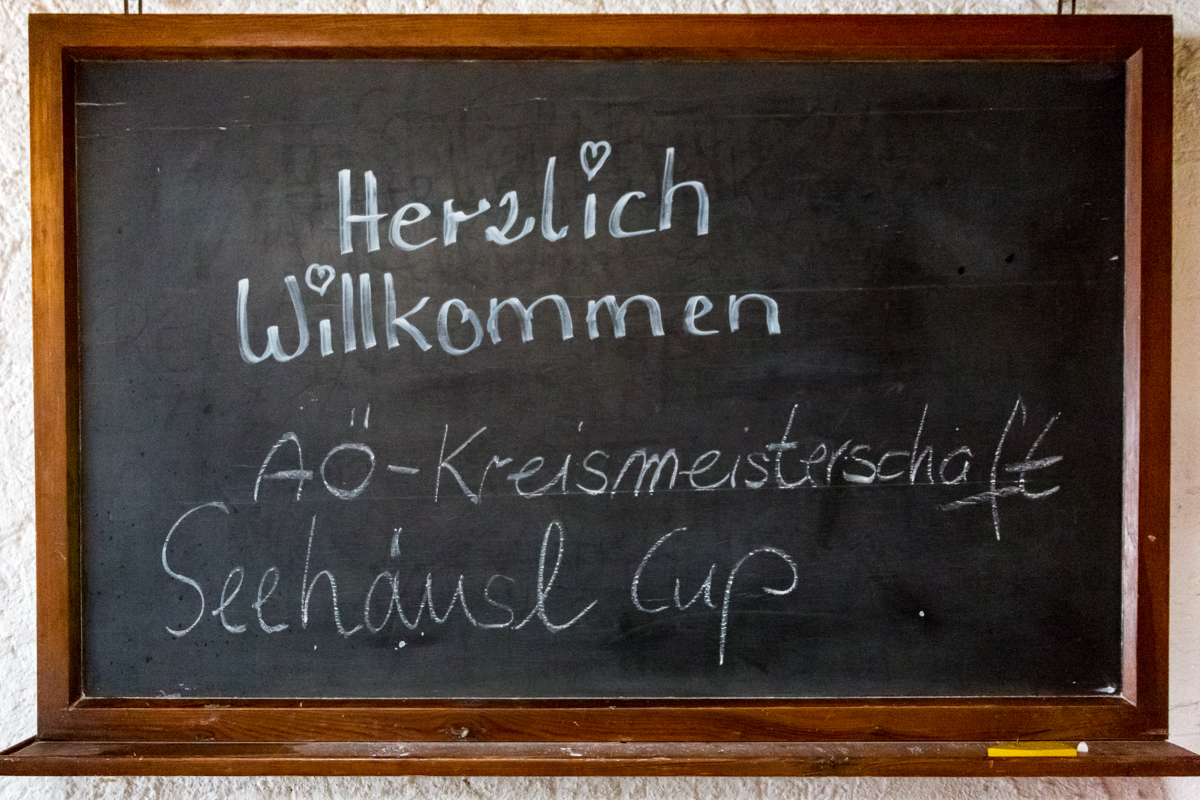 Herzlich
Willkommen
AÖ-Kreismeisterschaft
Seehäusl Cup